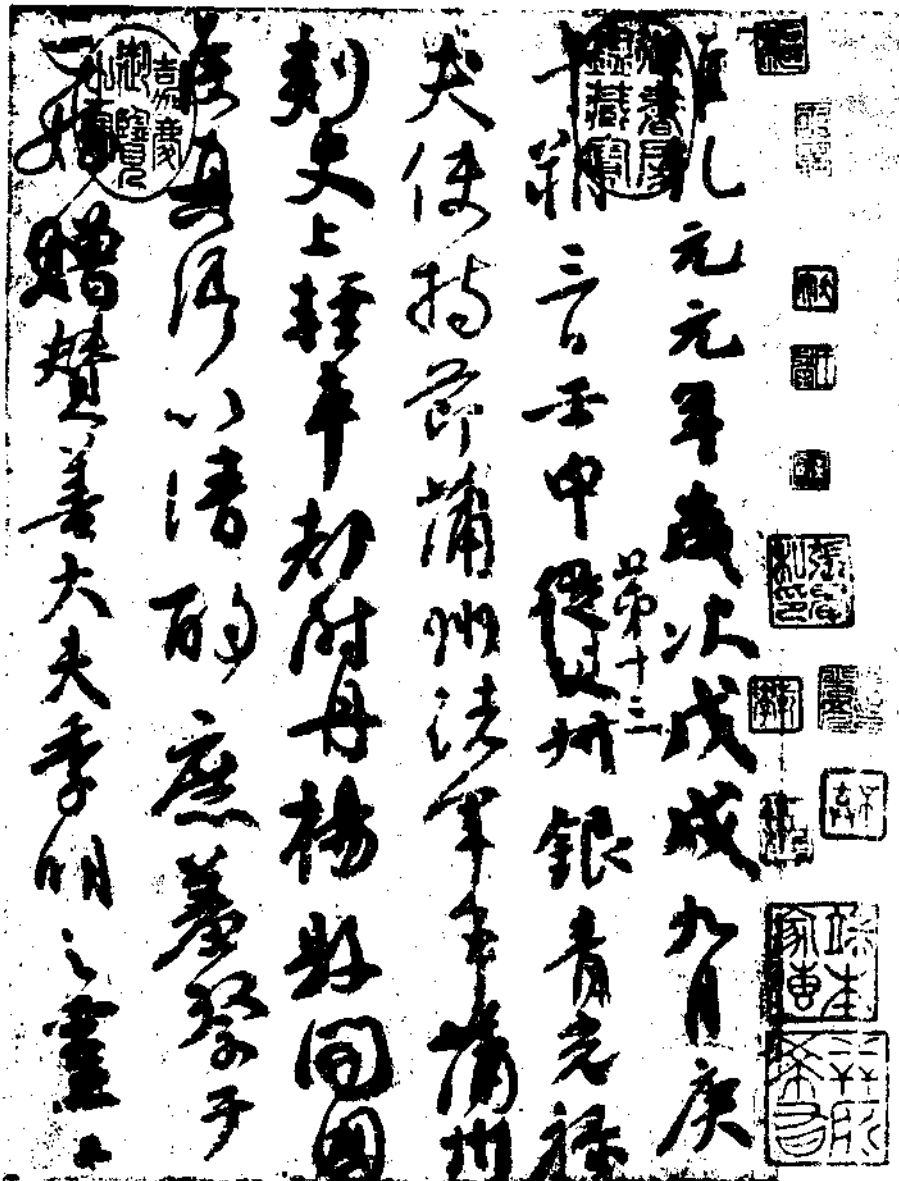 維乾元元年歲次戊戌九月庚
午朔三日壬申第十三從父叔銀青光祿
夫使持節蒲州諸軍事蒲州
刺史上輕車都尉丹楊縣開國
侯真卿以清酌庶羞祭于
亡姪贈贊善大夫季明之靈曰
嘉慶御覽之寶